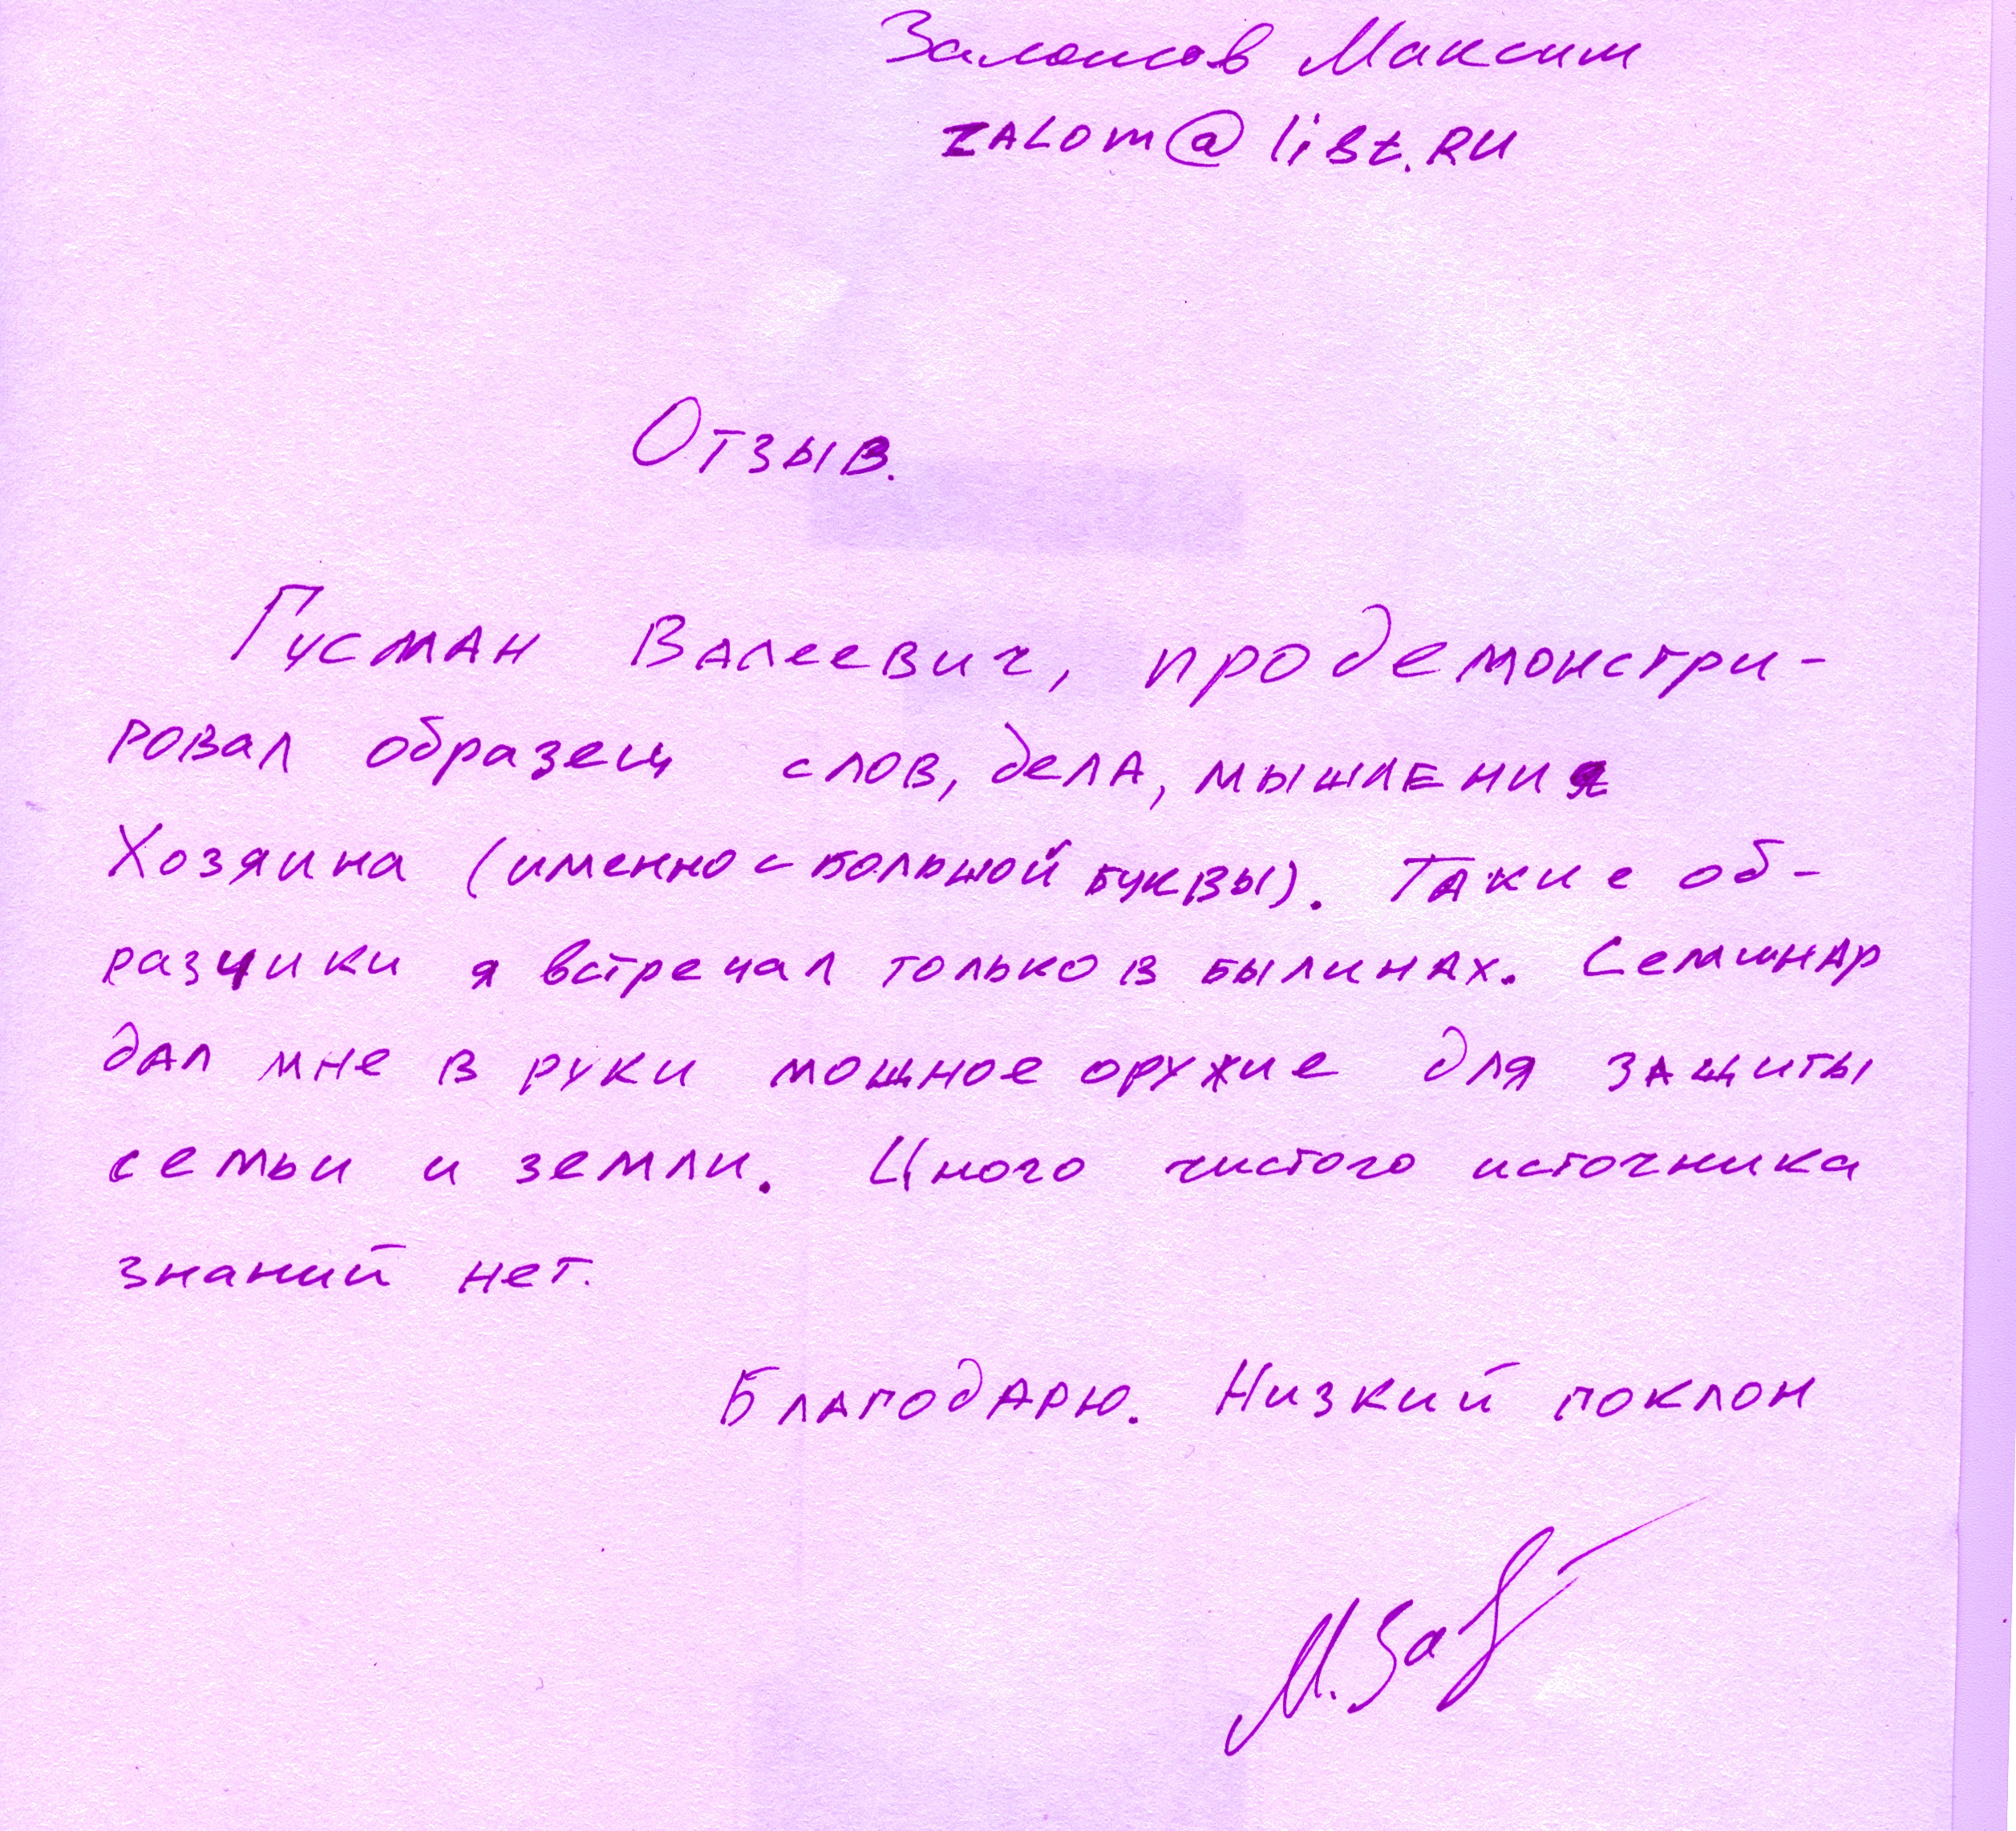 Заломов Максим
ZALOM@list.RU
Отзыв.
Гусман Валеевич, продемонстри-
ровал образец слов, дела, мышления
Хозяина (именно с большой буквы). Такие об-
разчики я встречал только в былинах. Семинар
дал мне в руки мощное оружие для защиты
семьи и земли. Иного чистого источника
знаний нет.
Благодарю. Низкий поклон